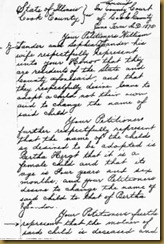 State of Illinois
Cook County
In County Court
of Cook County
Your Petitioner William
Zander and Sophia Zander his
wife respectfully represent
unto your Honor that they
are residents of the State and
County aforesaid, and that
they respectfully desire leave to
adopt a child not their own
and to change the name of
said child
Your Petitioner
further respectfully represents
that the name of the child
so desired to be adopted is
Bertha Hergot that it is a
female child and that its
age is four years and six
months, and your Petitioner
desires to change the name of
said child to that of Bertha
Zander
Your Petitioner further
represents that the mother of
said child is deceased and